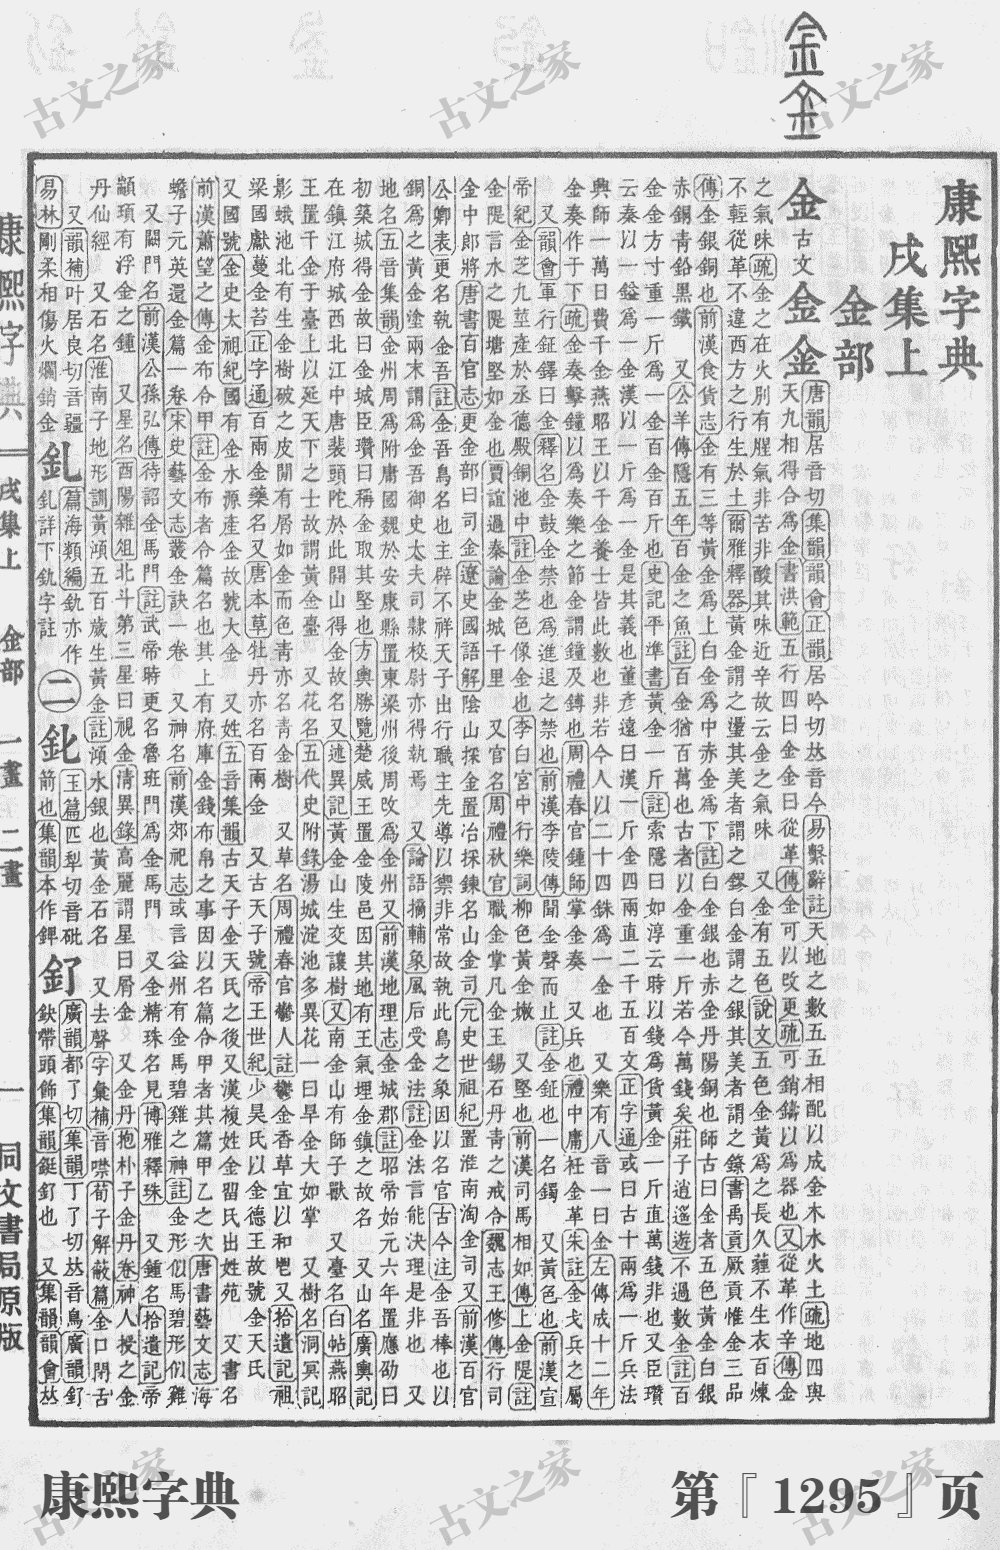 康熙字典
戌集上
金部
金 古文 金 金
唐韻居音切集韻韻會正韻居吟切𠀤音今易繫辭註天地之數五五相配以成金木水火土疏地四與
天九相得合爲金書洪範五行四曰金金曰從革傳金可以攺更疏可銷鑄以爲器也又從革作辛傳金
之氣味疏金之在火別有腥氣非苦非酸其味近辛故云金之氣味 又金有五色說文五色金黃爲之長久薶不生衣百煉
不輕從革不違西方之行生於土爾雅釋器黃金謂之璗其美者謂之鏐白金謂之銀其美者謂之鐐書禹貢厥貢惟金三品
傳金銀銅也前漢食貨志金有三等黃金爲上白金爲中赤金爲下註白金銀也赤金丹陽銅也師古曰金者五色黃金白銀
赤銅靑鉛黑鐵 又公羊傳隱五年百金之魚註百金猶百萬也古者以金重一斤若今萬錢矣莊子逍遙遊不過數金註百
金金方寸重一斤爲一金百金百斤也史記平準書黃金一斤註索隱曰如淳云時以錢爲貨黃金一斤直萬錢非也又臣瓚
云秦以一鎰爲一金漢以一斤爲一金是其義也董彥遠曰漢一斤金四兩直二千五百文正字通或曰古十兩爲一斤兵法
興師一萬日費千金燕昭王以千金養士皆此數也非若今人以二十四銖爲一金也 又樂有八音一曰金左傳成十二年
金奏作于下疏金奏擊鐘以爲奏樂之節金謂鐘及鎛也周禮春官鍾師掌金奏 又兵也禮中庸衽金革朱註金戈兵之屬
又韻會軍行鉦鐸曰金釋名金鼓金禁也爲進退之禁也前漢李陵傳聞金聲而止註金鉦也一名鐲 又黃色也前漢宣
帝紀金芝九莖產於丞德殿銅池中註金芝色像金也李白宮中行樂詞柳色黃金嫩 又堅也前漢司馬相如傳上金隄註
金隄言水之隄塘堅如金也賈誼過秦論金城千里 又官名周禮秋官職金掌凡金玉錫石丹靑之戒令魏志王修傳行司
金中郎將唐書百官志更金部曰司金遼史國語解陰山採金置冶採鍊名山金司元史世祖紀置淮南淘金司又前漢百官
公卿表更名執金吾註金吾鳥名也主辟不祥天子出行職主先導以禦非常故執此鳥之象因以名官古今注金吾棒也以
銅爲之黃金塗兩末謂爲金吾御史大夫司隷校尉亦得執焉 又論語摘輔象風后受金法註金法言能決理是非也 又
地名五音集韻金州周爲附庸國魏於安康縣置東梁州後周攺爲金州又前漢地理志金城郡註昭帝始元六年置應劭曰
初築城得金故曰金城臣瓚曰稱金取其堅也方輿勝覽楚威王置金陵邑因其地有王氣埋金鎭之故名 又山名廣輿記
在鎭江府城西北江中唐裴頭陀於此開山得金故名又述異記黃金山生交讓樹又南金山有師子獸 又臺名白帖燕昭
王置千金于臺上以延天下之士故謂黃金臺 又花名五代史附錄湯城淀池多異花一曰旱金大如掌 又樹名洞冥記
影娥池北有生金樹破之皮閒有屑如金而色靑亦名靑金樹 又草名周禮春官鬱人註鬱金香草宜以和鬯又拾遺記祖
梁國獻蔓金苔正字通百兩金藥名又唐本草牡丹亦名百兩金 又古天子號帝王世紀少昊氏以金德王故號金天氏
又國號金史太祖紀國有金水源產金故號大金 又姓五音集韻古天子金天氏之後又漢複姓金留氏出姓苑 又書名
前漢蕭望之傳金布令甲註金布者令篇名也其上有府庫金錢布帛之事因以名篇令甲者其篇甲乙之次唐書藝文志海
蟾子元英還金篇一卷宋史藝文志叢金訣一卷 又神名前漢郊祀志或言益州有金馬碧雞之神註金形似馬碧形似雞
又闕門名前漢公孫弘傳待詔金馬門註武帝時更名魯班門爲金馬門 又金精珠名見博雅釋珠 又鍾名拾遺記帝
顓頊有浮金之鍾 又星名酉陽雜俎北斗第三星曰視金淸異錄高麗謂星曰屑金 又金丹抱朴子金丹卷神人授之金
丹仙經 又石名淮南子地形訓黃澒五百歲生黃金註澒水銀也黃金石名 又去聲字彙補音噤荀子解蔽篇金口閉舌
又韻補叶居良切音疆
易林剛柔相傷火爛銷金
釓
篇海類編釚亦作
釓詳下釚字註
二
玉篇匹切音砒
箭也集韻本作錍
釕
廣韻都了切集韻丁了切𠀤音鳥廣韻釕
鈌帶頭飾集韻鋌釕也 又集韻韻會𠀤
康熙字典 戌集上 金部 一畫 二畫 一 同文書局原版
康熙字典
第『1295』页
古文之家
古文之家
古文之家
古文之家
古文之家
古文之家